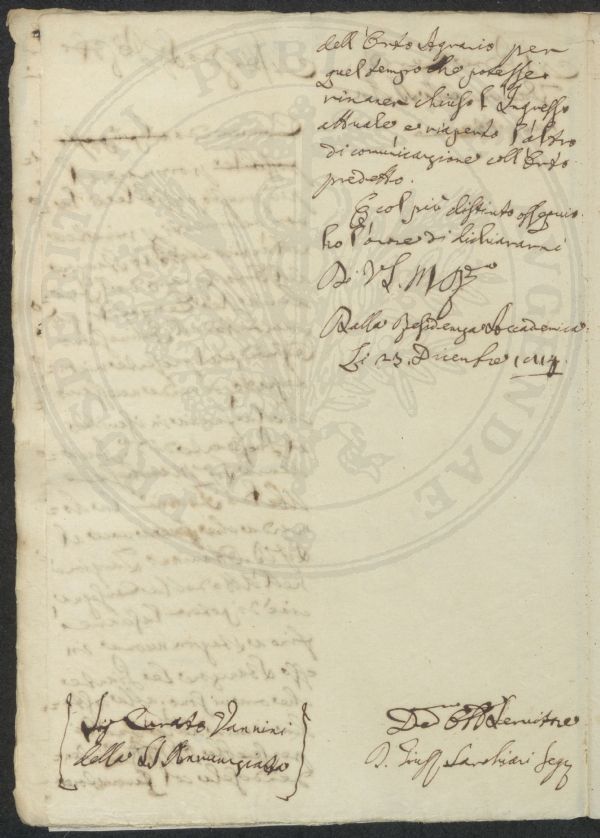 dell'Orto Agrario per
quel tempo che potesse
rimaner chiuso l'Ingresso
attuale e riaperto l'altro
di comunicazione coll'Orto
predetto.
E col più distinto ossequio
ho l'onore di dichiararmi
Di VS. M
Dalla Residenza Accademica
Li 23. Dicembre
Sig Curato Vannini
della SS Annunziata
Servitore
D. Segr
PROSPERITATI PUBL AUGENDAE